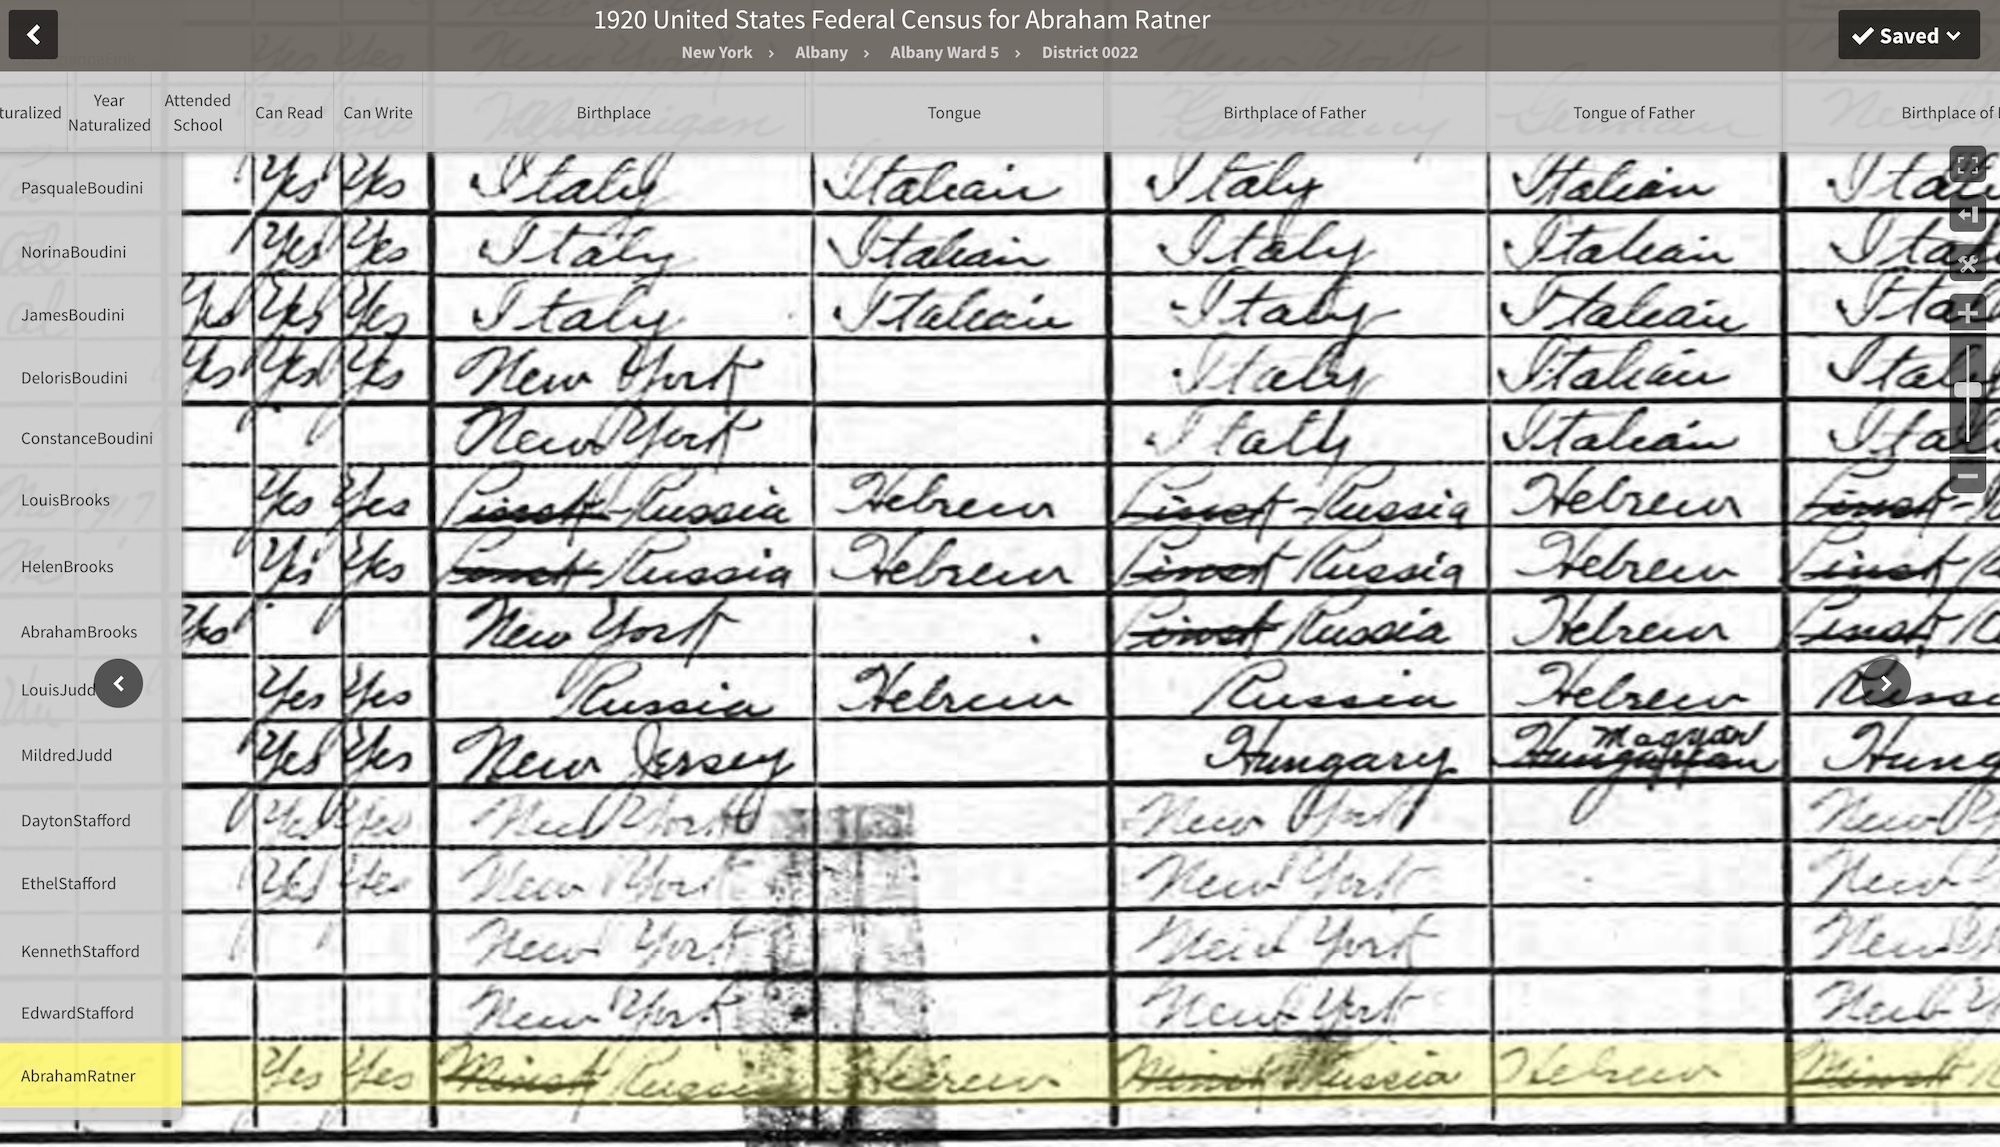 1920 United States Federal Census for Abraham Ratner
Saved
New York > Albany > Albany Ward 5 > District 0022
turalized Year Naturalized Attended School Can Read Can Write Birthplace Tongue Birthplace of Father Tongue of Father Birthplace of
PasqualeBoudini Yes Yes Italy Italian Italy Italian Ital
NorinaBoudini Yes Yes Italy Italian Italy Italian Ita
JamesBoudini Yes Yes Yes Italy Italian Italy Italian Ita
DelorisBoudini Yes Yes Yes New York Italy Italian Ital
ConstanceBoudini New York Italy Italian Ital
LouisBrooks Yes Yes Pinsk-Russia Hebrew Pinsk-Russia Hebrew Pinsk-
HelenBrooks Yes Yes Pinsk Russia Hebrew Pinsk Russia Hebrew Pinsk
AbrahamBrooks Yes New York Pinsk Russia Hebrew Pinsk
LouisJudd Yes Yes Russia Hebrew Russia Hebrew Russ
MildredJudd Yes Yes New Jersey Hungary Hungarian Magyar Hung
DaytonStafford Yes Yes New York New York New
EthelStafford Yes Yes New York New York New
KennethStafford New York New York New
EdwardStafford New York New York New
AbrahamRatner Yes Yes Minsk Russia Hebrew Minsk Russia Hebrew Minsk